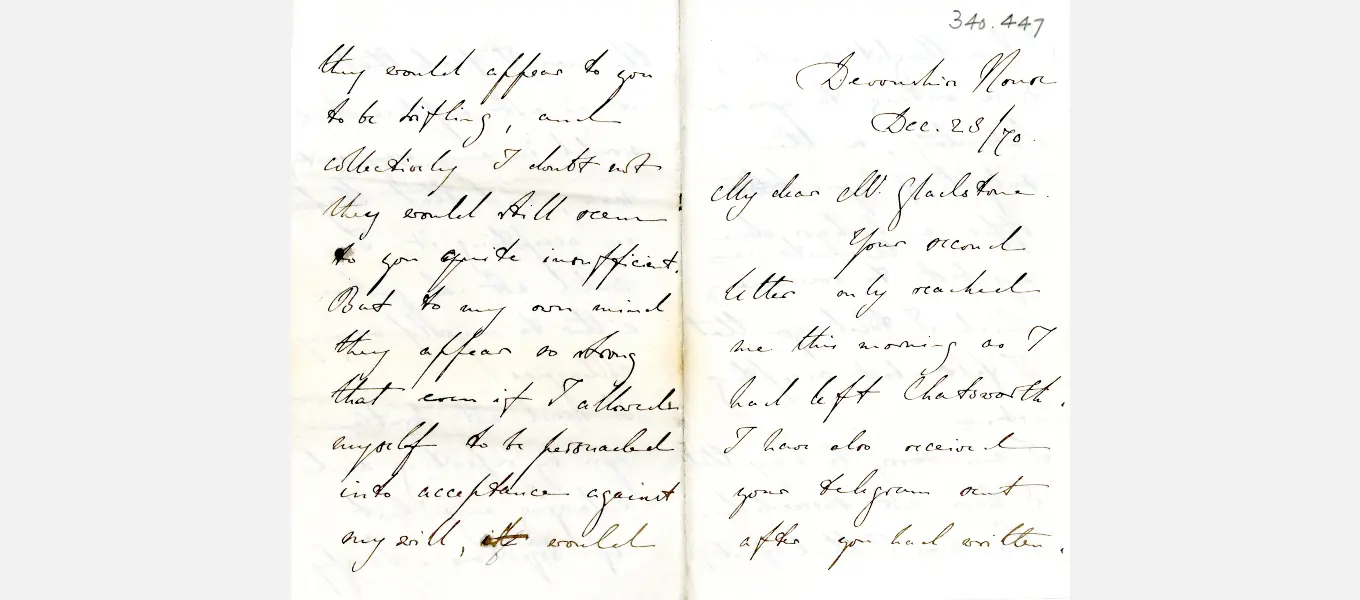 340.447
Devonshire House
Dec. 28/70.
My dear Mr. Gladstone.
Your second
letter only reached
me this morning as I
had left Chatsworth.
I have also received
your telegram sent
after you had written.
they would appear to you
to be trifling, and
collectively I doubt not
they would still seem
to you quite insufficient.
But to my own mind
they appear so strong
that even if I allowed
myself to be persuaded
into acceptance against
my will, it would